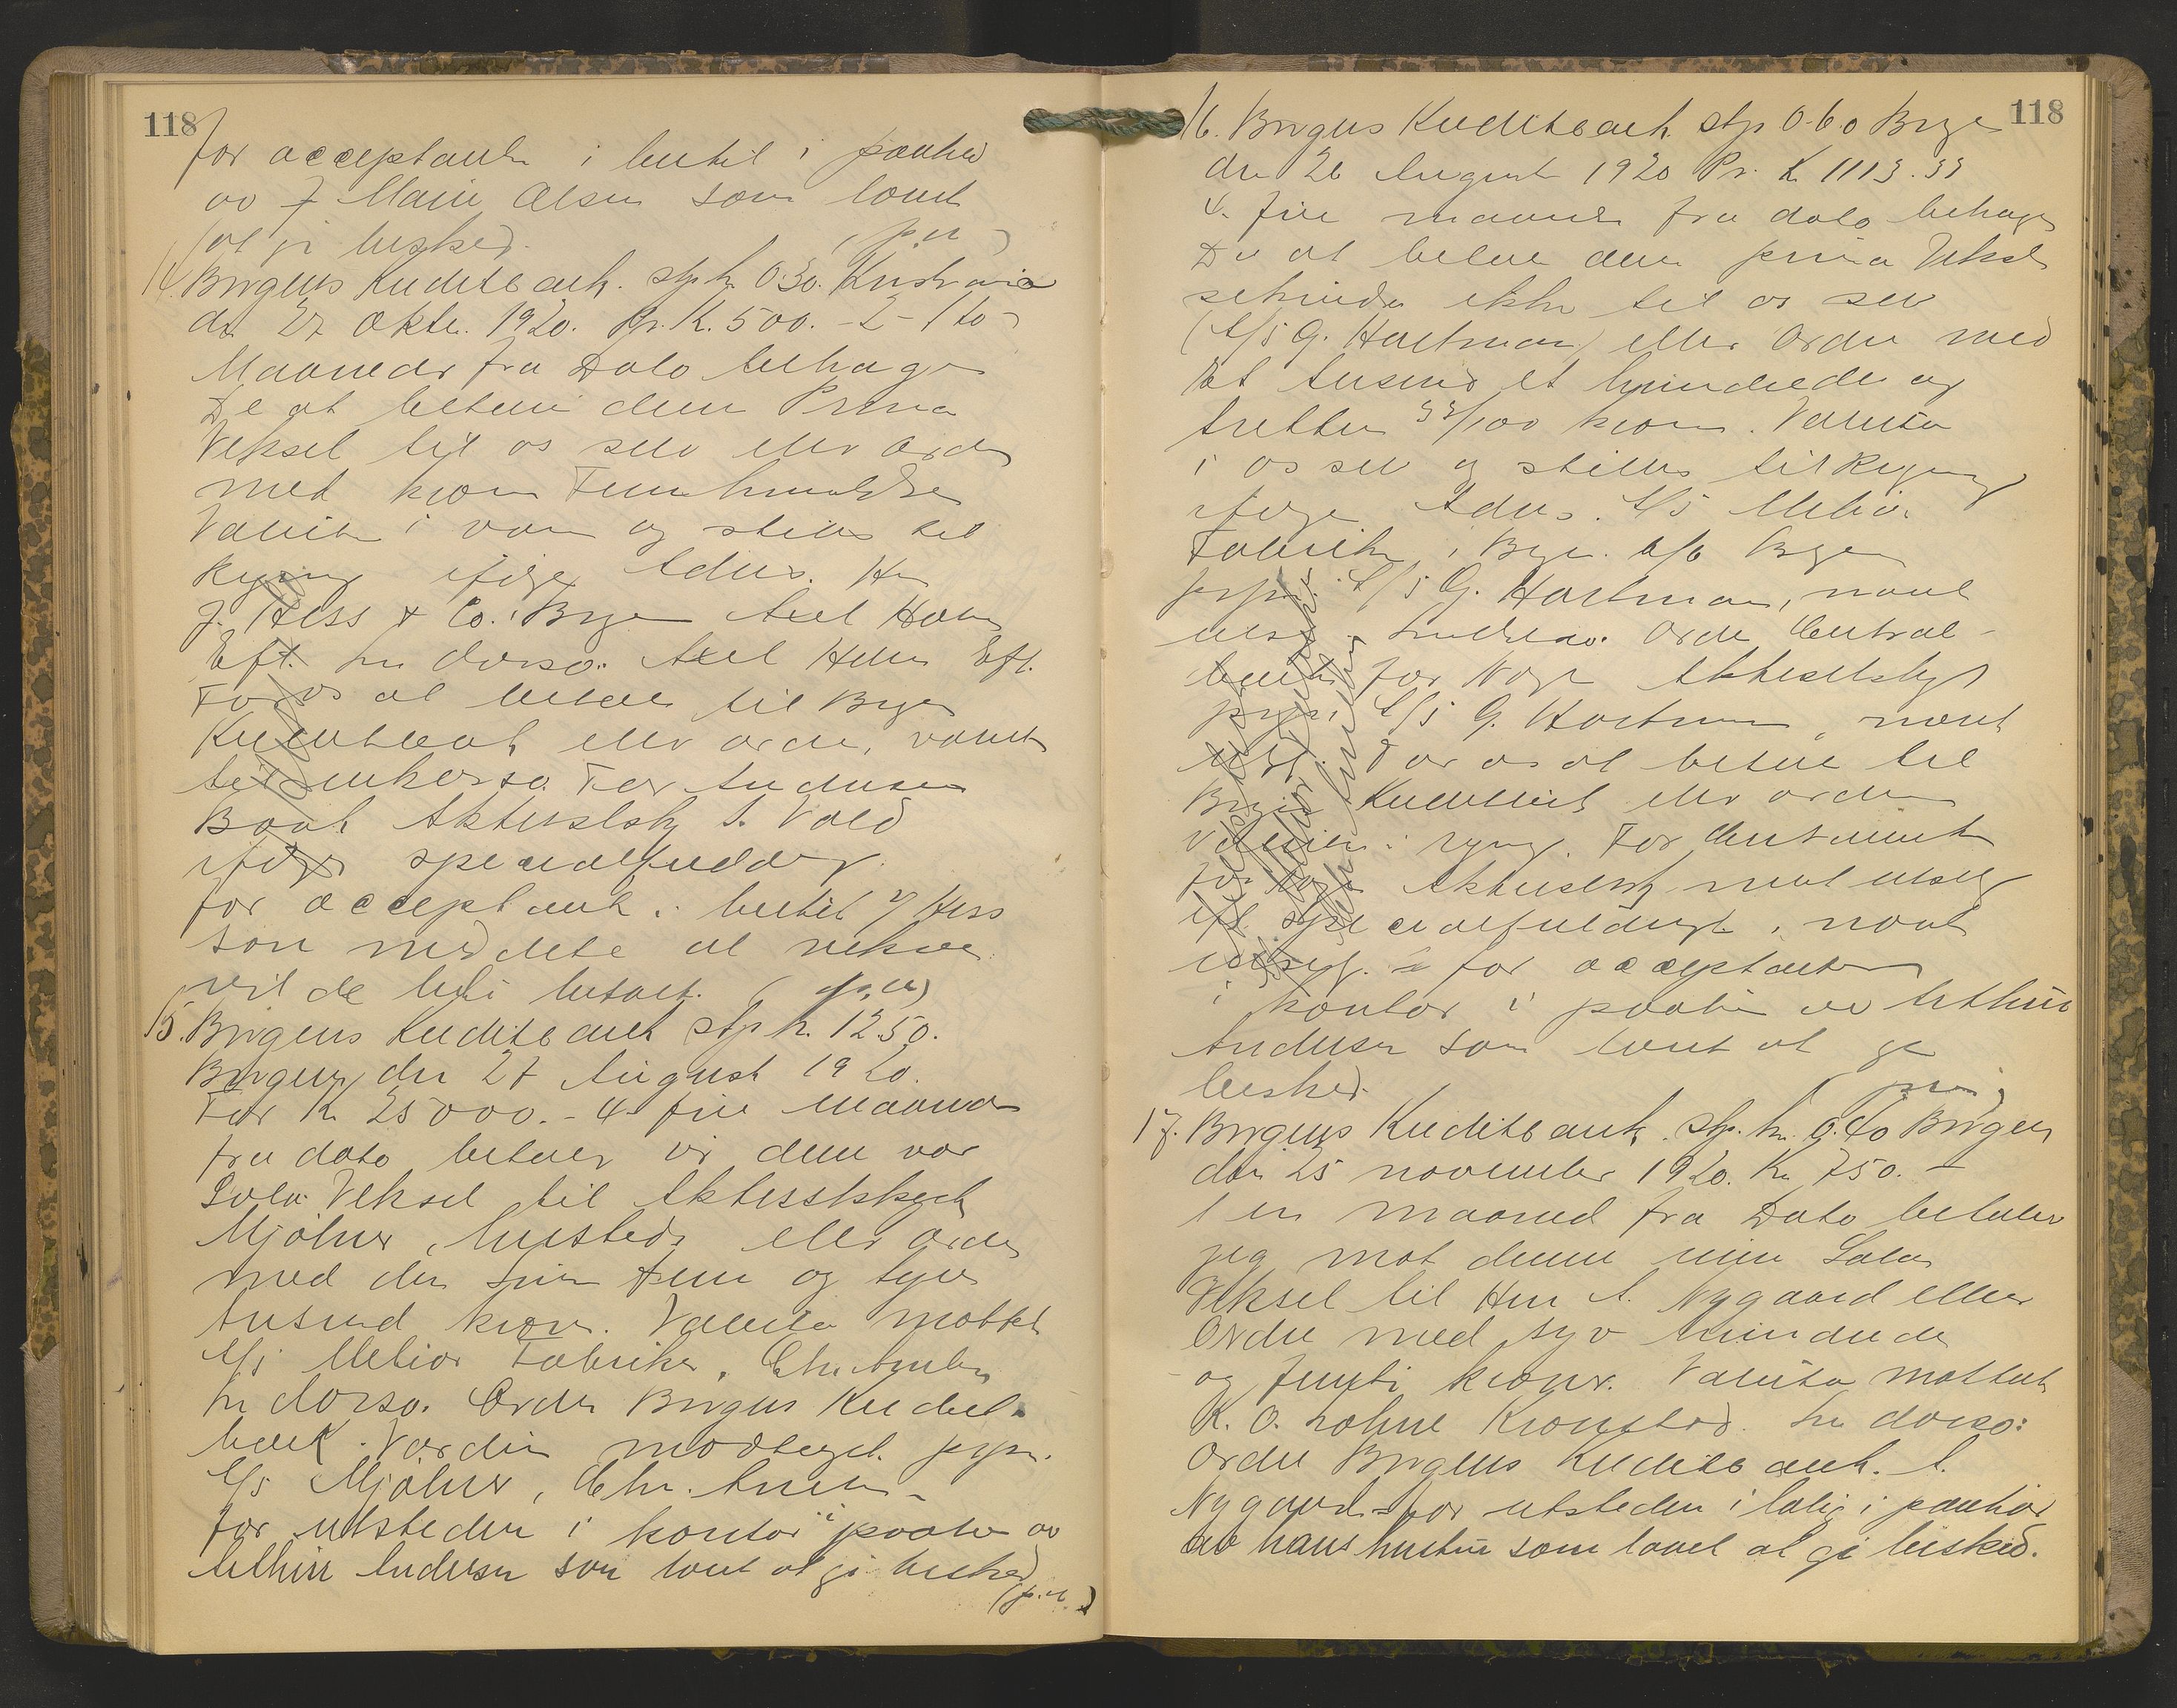 118
for acceptanten i butik i paahør
av Marie Olsen som lovet
at gi besked. (p.u.)
14. Bergens Kreditbank. stp. kr. 0.30. Kristiania
den 27 Oktbr. 1920. Pr. K. 500. - 2 - to
Maaneder fra Dato behager
De at betale denne Prima
Veksel til os selv eller ordre
med kroner Fem hundrede
Valuta i varer og stilles til
Regning ifølge Adviso. Hr
J. Hess & Co. Bergen Axel Holm
Eft. In dorso. Axel Holm Eft.
For os at betale til Bergens
Kreditbank eller ordre, valuta
til inkasso. For Andresens
Bank Aktieselskap
ifølge specialfuldmagt.
for acceptant i butik Hess
som meddelte at vekselen
vil de bli betalt. (p.u.)
15. Bergens Kreditbank stp. k. 12.50.
Bergen, den 27 August 1920.
For Kr 25000. - 4 - fire Maaneder
fra dato betaler vi denne vor
Sola Veksel til Aktieselskapet
Mjølner, hersteds eller ordre
med den Sum fem og tyve
tusend kroner. Valuta mottat
A/S Melior Fabriker. Chr.
In dorso. Ordre Bergens Kredit-
bank. Værdien modtaget. pr pr.
A/S Mjølner, Chr.
for utstederen i kontor i paahør av
Arthur Andersen som lovet at gi besked
(p.u.)
118
16. Bergens Kreditbank stp 0.60 Bergen
den 26 August 1920 Pr. K 1113.33
4. fire maaneder fra dato behager
De at betale denne prima Veksel
sekunda ikke til os selv
(A/S G. Hartman) eller Ordre med
Et tusend et hundrede og
tretten 33/100 kroner. Valuta
i os selv og stilles til Regning
ifølge Advis. A/S Melior
Fabriker i Bergen. b/b Bergen
pr pr. A/S G. Hartman, navn
ulæs. Indorso. Ordre Central-
banken for Norge Aktieselskap
pr pr. A/S G. Hartman, navn
For os at betale til
Bergens Kreditbank eller ordre
Valuta i regning. For Centralbanken
for Norge Aktieselskap navn ulæselig
ifl. specialfuldmagt, navn
ulæselig. for acceptanten
i kontor i paahør av Arthur
Andersen som lovet at gi
besked. (p.u.)
17. Bergens Kreditbank. stp. kr. 0.40 Bergen
den 25 november 1920. Kr. 750. -
1 en maaned fra Dato betaler
jeg mot denne min Sola
Veksel til Herr A. Nygaard eller
Ordre med syv hundrede
og femti kroner. Valuta mottatt
K. O. Lohne Kronstad. In dorso:
Ordre Bergens Kreditbank. A.
Nygaard - for utstederen i bolig i paahør
av hans hustru som lovet at gi besked.